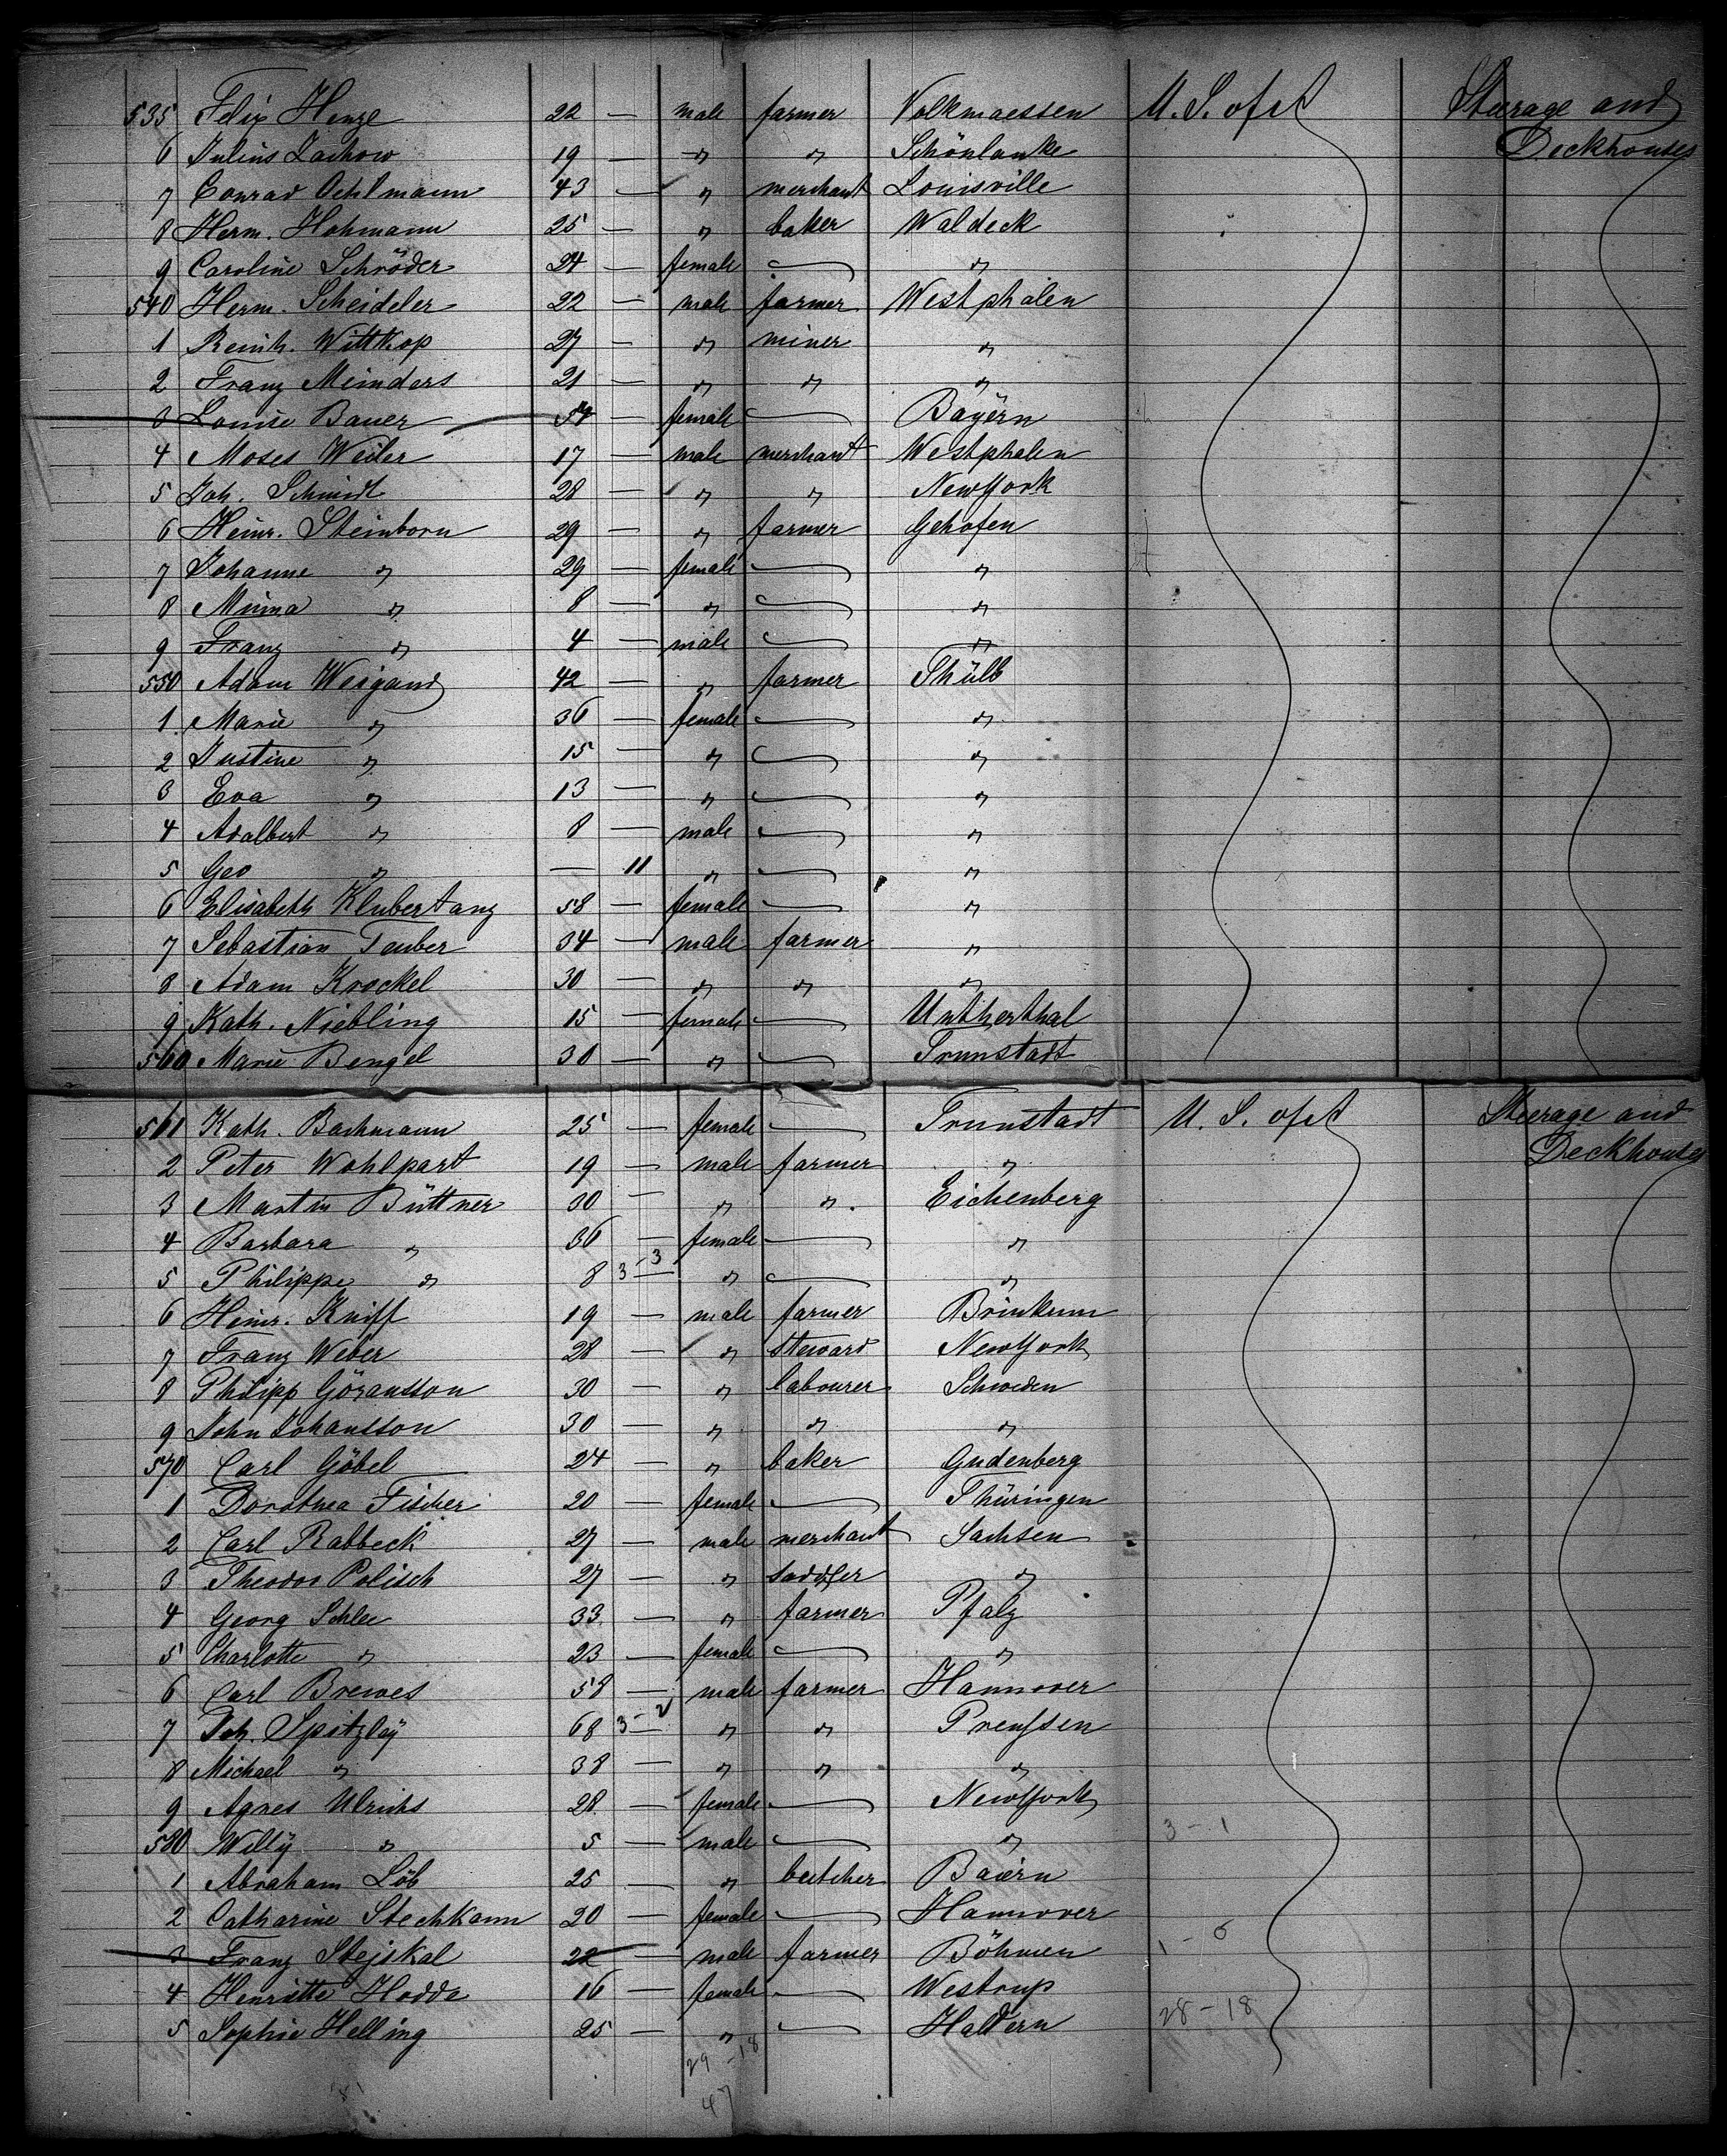 535 Felix Henze 22 — male farmer Volkmaessen U. S. of A Steerage and
Deckhouses
6 Julius Zachow 19 — " " Schönlanke
7 Conrad Oehlmann 43 — " merchant Louisville
8 Herm. Hohmann 25 — " baker Waldeck
9 Caroline Schröder 24 — female — "
540 Herm. Scheideler 22 — male farmer Westphalen
1 Reinh. Wittkop 27 — " miner "
2 Franz Meinders 21 — " " "
3 Louise Bauer 54 — female — Bayern
4 Moses Weiler 17 — male merchant Westphalen
5 Joh. Schmidt 28 — " " NewYork
6 Heinr. Steinborn 29 — " farmer Gehofen
7 Johanne " 29 — female — "
8 Minna " 8 — " — "
9 Franz " 4 — male — "
550 Adam Weigand 42 — " farmer Thülb
1 Marie " 36 — female — "
2 Justine " 15 — " — "
3 Eva " 13 — " — "
4 Adalbert " 8 — male — "
5 Geo " — 11 " — "
6 Elisabeth Klubertanz 58 — female — "
7 Sebastian Tauber 34 — male farmer "
8 Adam Krockel 30 — " " "
9 Kath. Niebling 15 — female — Untherthal
560 Marie Bengel 30 — " — Trunstadt
561 Kath. Bachmann 25 — female — Trunstadt U. S. of A Steerage and
Deckhouses
2 Peter Wohlpart 19 — male farmer "
3 Martin Büttner 30 — " " Eichenberg
4 Barbara " 36 — female — "
5 Philippe " 8 3-3 — " — "
6 Heinr. Kniff 19 — male farmer Brinkum
7 Franz Weber 28 — " steward NewYork
8 Philipp Göransson 30 — " labourer Schweden
9 John Johansson 30 — " " "
570 Carl Göbel 24 — " baker Gudenberg
1 Dorothea Fischer 20 — female — Thüringen
2 Carl Rabbeck 27 — male merchant Sachsen
3 Theodor Polisch 27 — " saddler "
4 Georg Schlee 33 — " farmer Pfalz
5 Charlotte " 23 — female — "
6 Carl Brewes 58 — male farmer Hannover
7 Joh. Spitzley 68 3- — " " Preussen
8 Michael " 38 — " " "
9 Agnes Ulrichs 28 — female — NewYork
580 Willy " 5 — male — " 3-1
1 Abraham Löb 25 — " butcher Baiern
2 Catharine Stechkann 20 — female — Hannover
3 Franz Stejskal 22 — male farmer Böhmen 1-6
4 Henriette Hodde 16 — female — Westrup
5 Sophie Helling 25 — " — Haldern 28-18
29-18
47